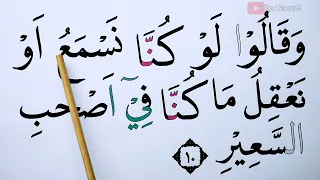 وَقَالُوْا لَوْ كُنَّا نَسْمَعُ اَوْ
نَعْقِلُ مَا كُنَّا فِيْۤ اَصْحٰبِ
السَّعِيْرِ ١٠